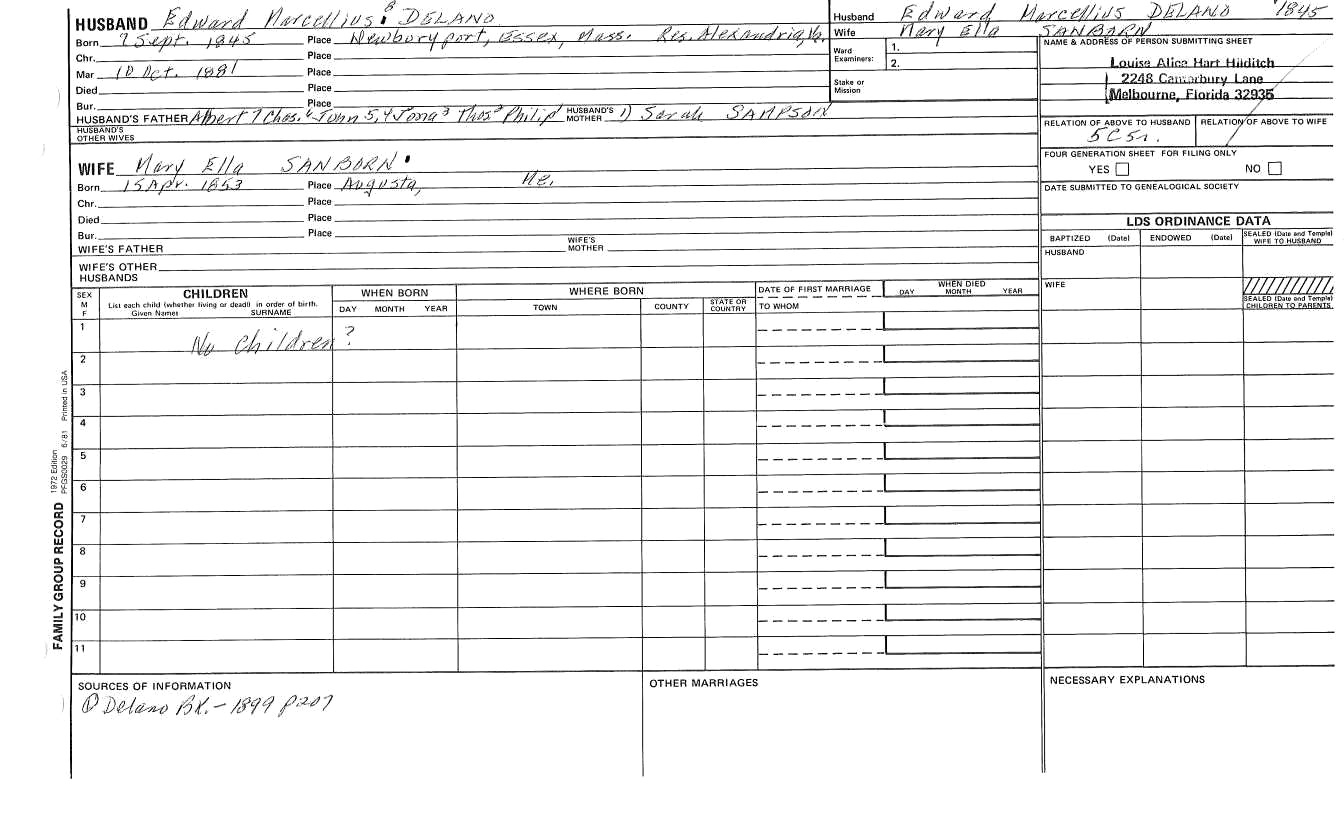 HUSBAND Edward Marcellius 8 DELANO
Born 7 Sept. 1845 Place Newburyport, Essex, Mass. Res. Alexandria, Va.
Chr. Place
Mar 10 Oct. 1881 Place
Died Place
Bur. Place
HUSBAND'S FATHER Albert 7 Chas. 6 John 5, 4 Jona 3 Thos 2 Philip HUSBAND'S MOTHER 1) Sarah SAMPSON
HUSBAND'S OTHER WIVES
WIFE Mary Ella SANBORN
Born 15 Apr. 1853 Place Augusta, Me.
Chr. Place
Died Place
Bur. Place
WIFE'S FATHER WIFE'S MOTHER
WIFE'S OTHER HUSBANDS
Husband Edward Marcellius DELANO 1845
Wife Mary Ella SANBARN
Ward Examiners: 1.
2.
Stake or Mission
NAME & ADDRESS OF PERSON SUBMITTING SHEET
Louise Alice Hart Hilditch
2248 Canterbury Lane
Melbourne, Florida 32935
RELATION OF ABOVE TO HUSBAND RELATION OF ABOVE TO WIFE
5C5r.
FOUR GENERATION SHEET FOR FILING ONLY
YES NO
DATE SUBMITTED TO GENEALOGICAL SOCIETY
LDS ORDINANCE DATA
BAPTIZED (Date) ENDOWED (Date) SEALED (Date and Temple) WIFE TO HUSBAND
HUSBAND
WIFE
SEALED (Date and Temple) CHILDREN TO PARENTS
SEX M F
CHILDREN
List each child (whether living or dead) in order of birth.
Given Names SURNAME
WHEN BORN
DAY MONTH YEAR
WHERE BORN
TOWN COUNTY STATE OR COUNTRY
DATE OF FIRST MARRIAGE
TO WHOM
WHEN DIED
DAY MONTH YEAR
1
No Children ?
2
3
4
5
6
7
8
9
10
11
SOURCES OF INFORMATION
① Delano BK. - 1899 p207
OTHER MARRIAGES
NECESSARY EXPLANATIONS
FAMILY GROUP RECORD
1972 Edition
PFGS0029 6/81 Printed in USA